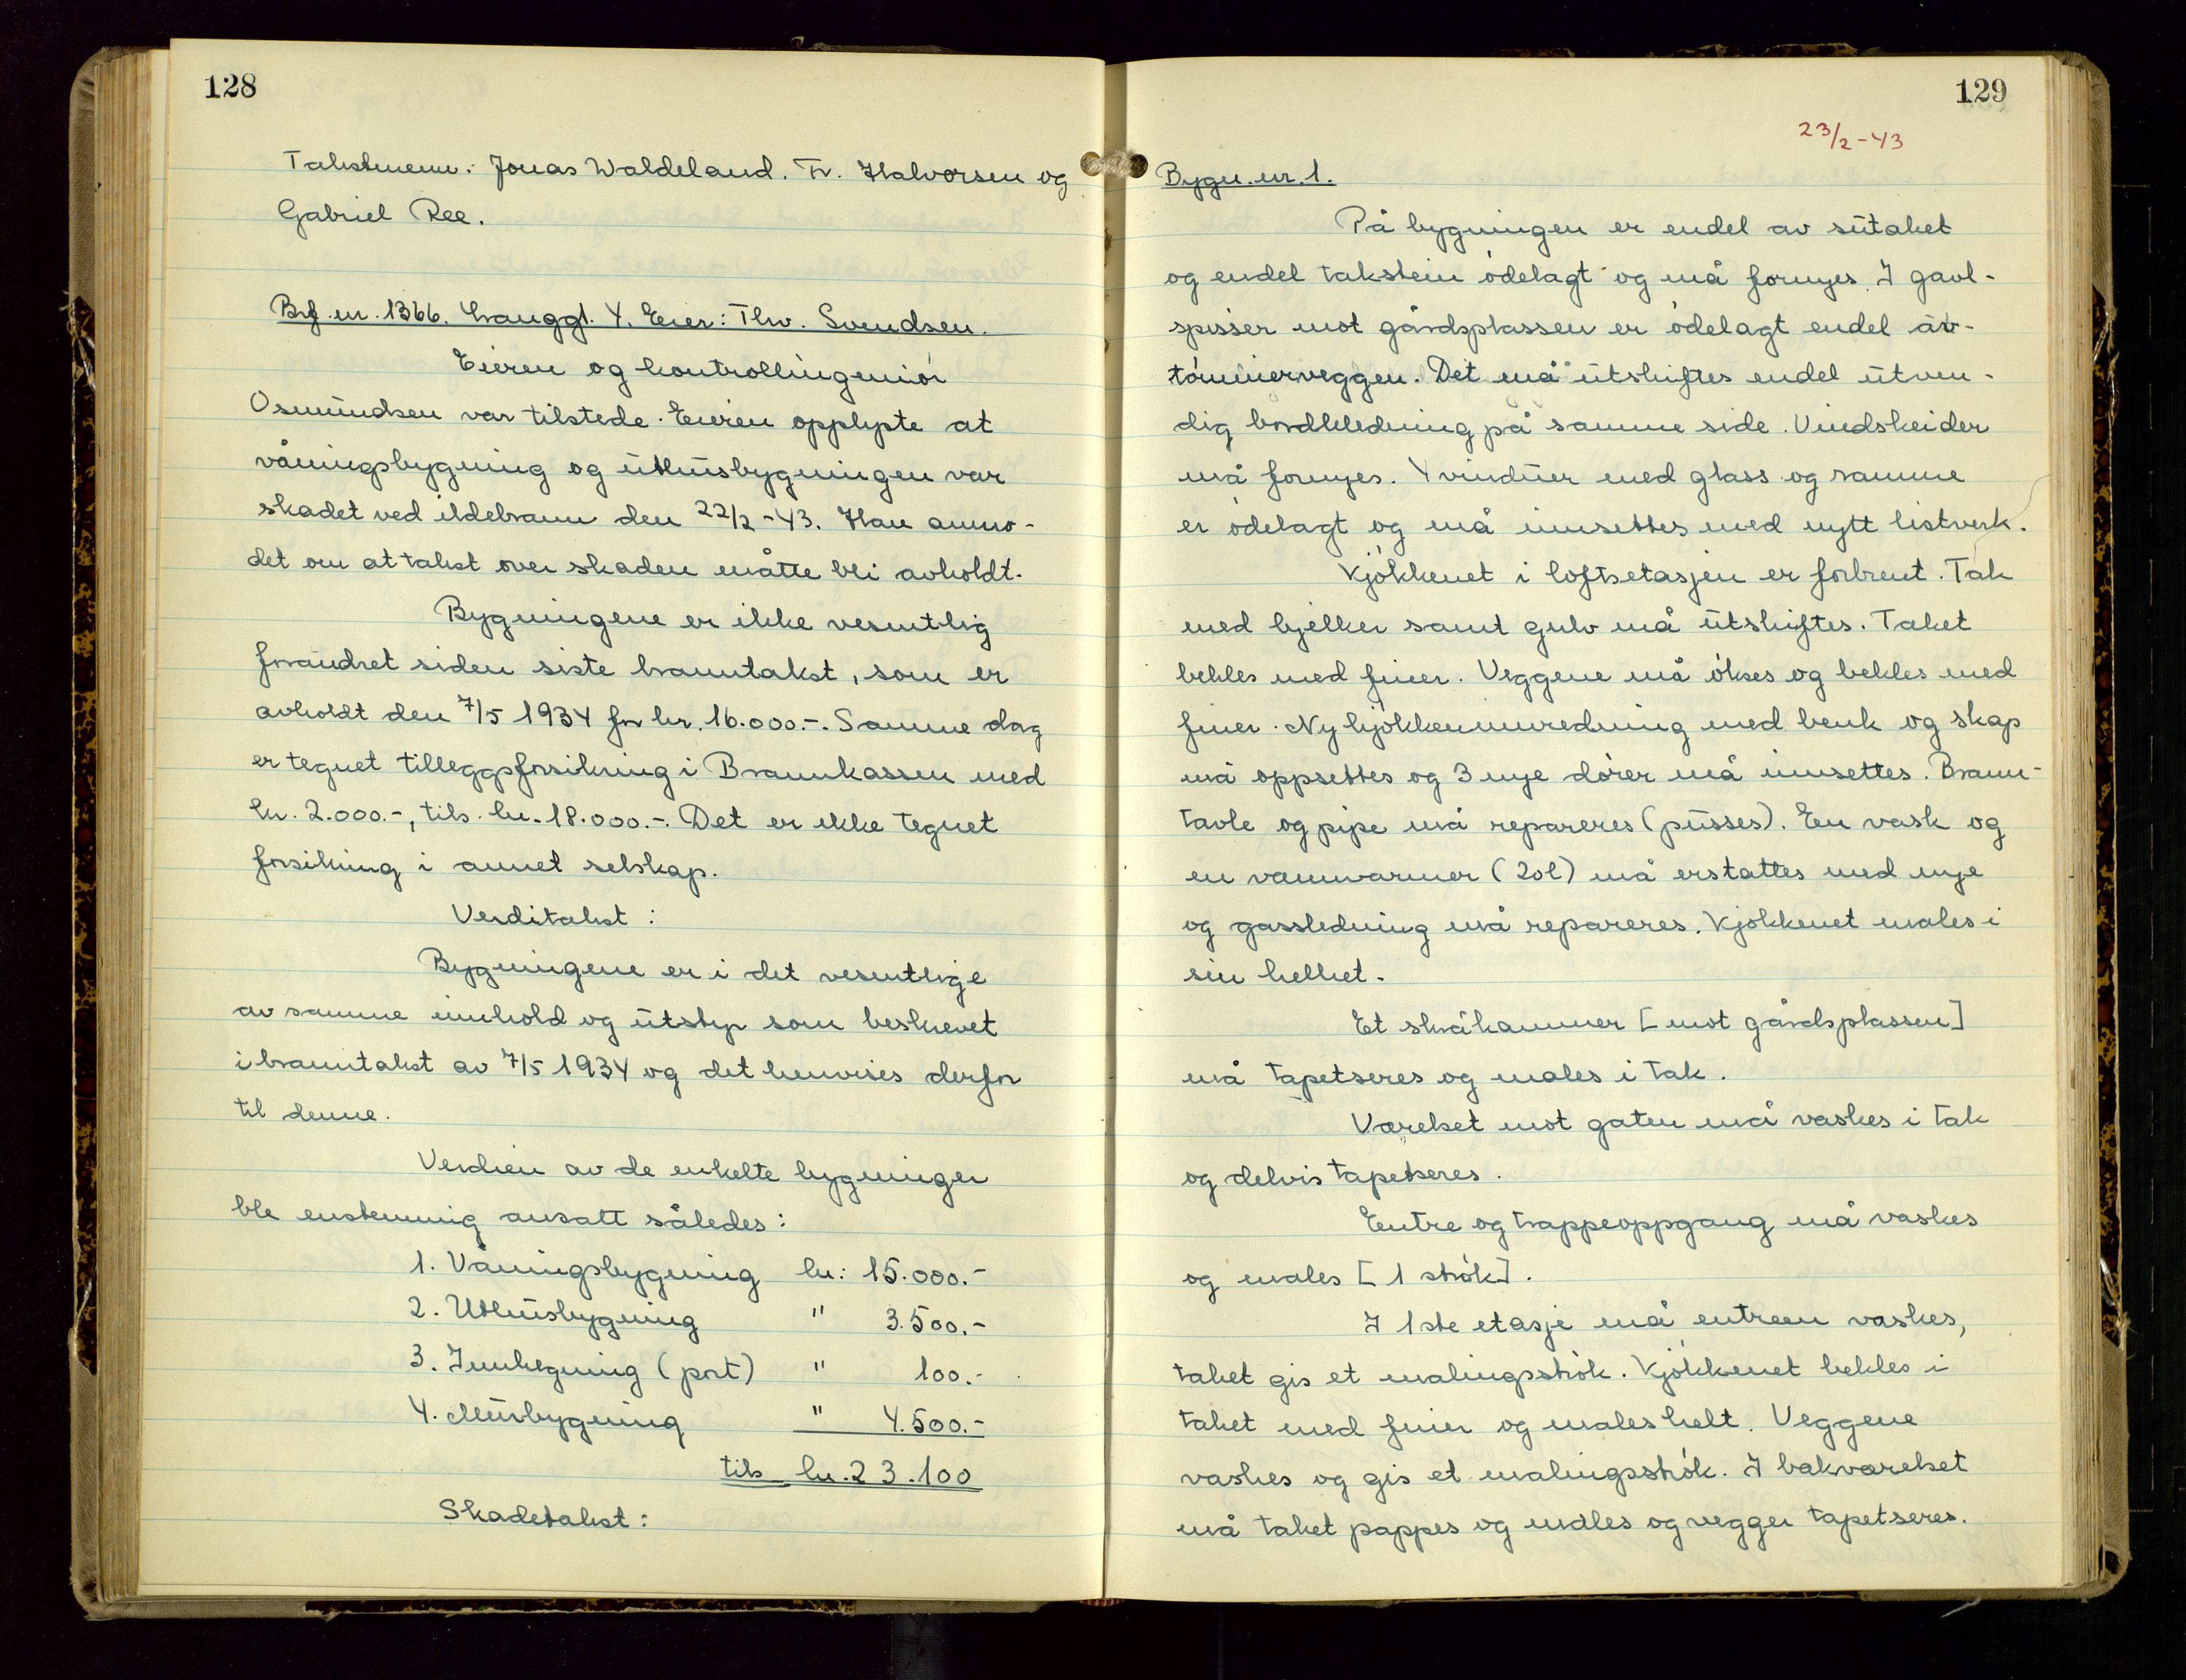 128
Takstmenn: Jonas Waldeland. Tr. Halvorsen og
Gabriel Ree.
Brf. nr. 1366. Langgt. 4. Eier: Thv. Svendsen.
Eieren og kontrollingeniør
Osmundsen var tilstede. Eieren opplyste at
våningsbygning og uthusbygningen var
skadet ved ildebrann den 22/2-43. Han anmo-
det om at takst over skaden måtte bli avholdt.
Bygningene er ikke vesentlig
forandret siden siste branntakst, som er
avholdt den 7/5 1934 for kr. 16.000.-. Samme dag
er tegnet tilleggsforsikring i Brannkassen med
kr. 2.000.-, tils. kr. 18.000.-. Det er ikke tegnet
forsikring i annet selskap.
Verditakst:
Bygningene er i det vesentlige
av samme innhold og utstyr som beskrevet
i branntakst av 7/5 1934 og det henvises derfor
til denne.
Verdien av de enkelte bygninger
ble enstemmig ansatt således:
1. Våningsbygning kr: 15.000.-
2. Uthusbygning " 3.500.-
3. Innhegning (port) " 100.-
4. Murbygning " 4.500.-
tils kr. 23.100
Skadetakst:
129
23/2-43
Bygn. nr. 1.
På bygningen er endel av sutaket
og endel takstein ødelagt og må fornyes. I gavl-
spisser mot gårdsplassen er ødelagt endel av-
tømmerveggen. Det må utskiftes endel utven-
dig bordkledning på samme side. Vindskeider
må fornyes. 4 vinduer med glass og ramme
er ødelagt og må innsettes med nytt listverk.
Kjøkkenet i loftsetasjen er forbrent. Tak
med bjelker samt gulv må utskiftes. Taket
bekles med finer. Veggene må økses og bekles med
finer. Ny kjøkkeninnredning med benk og skap
må oppsettes og 3 nye dører må innsettes. Brann-
tavle og pipe må repareres (pusses). En vask og
en vannvarmer (20l) må erstattes med nye
og gassledning må repareres. Kjøkkenet males i
sin helhet.
Et skråkammer [mot gårdsplassen]
må tapetseres og males i tak.
Værelset mot gaten må vaskes i tak
og delvis tapetseres.
Entre og trappeoppgang må vaskes
og males [1 strøk].
I 1ste etasje må entreen vaskes,
taket gis et malingsstrøk. Kjøkkenet bekles i
taket med finer og males helt. Veggene
vaskes og gis et malingsstrøk. I bakværelset
må taket pappes og males og vegger tapetseres.